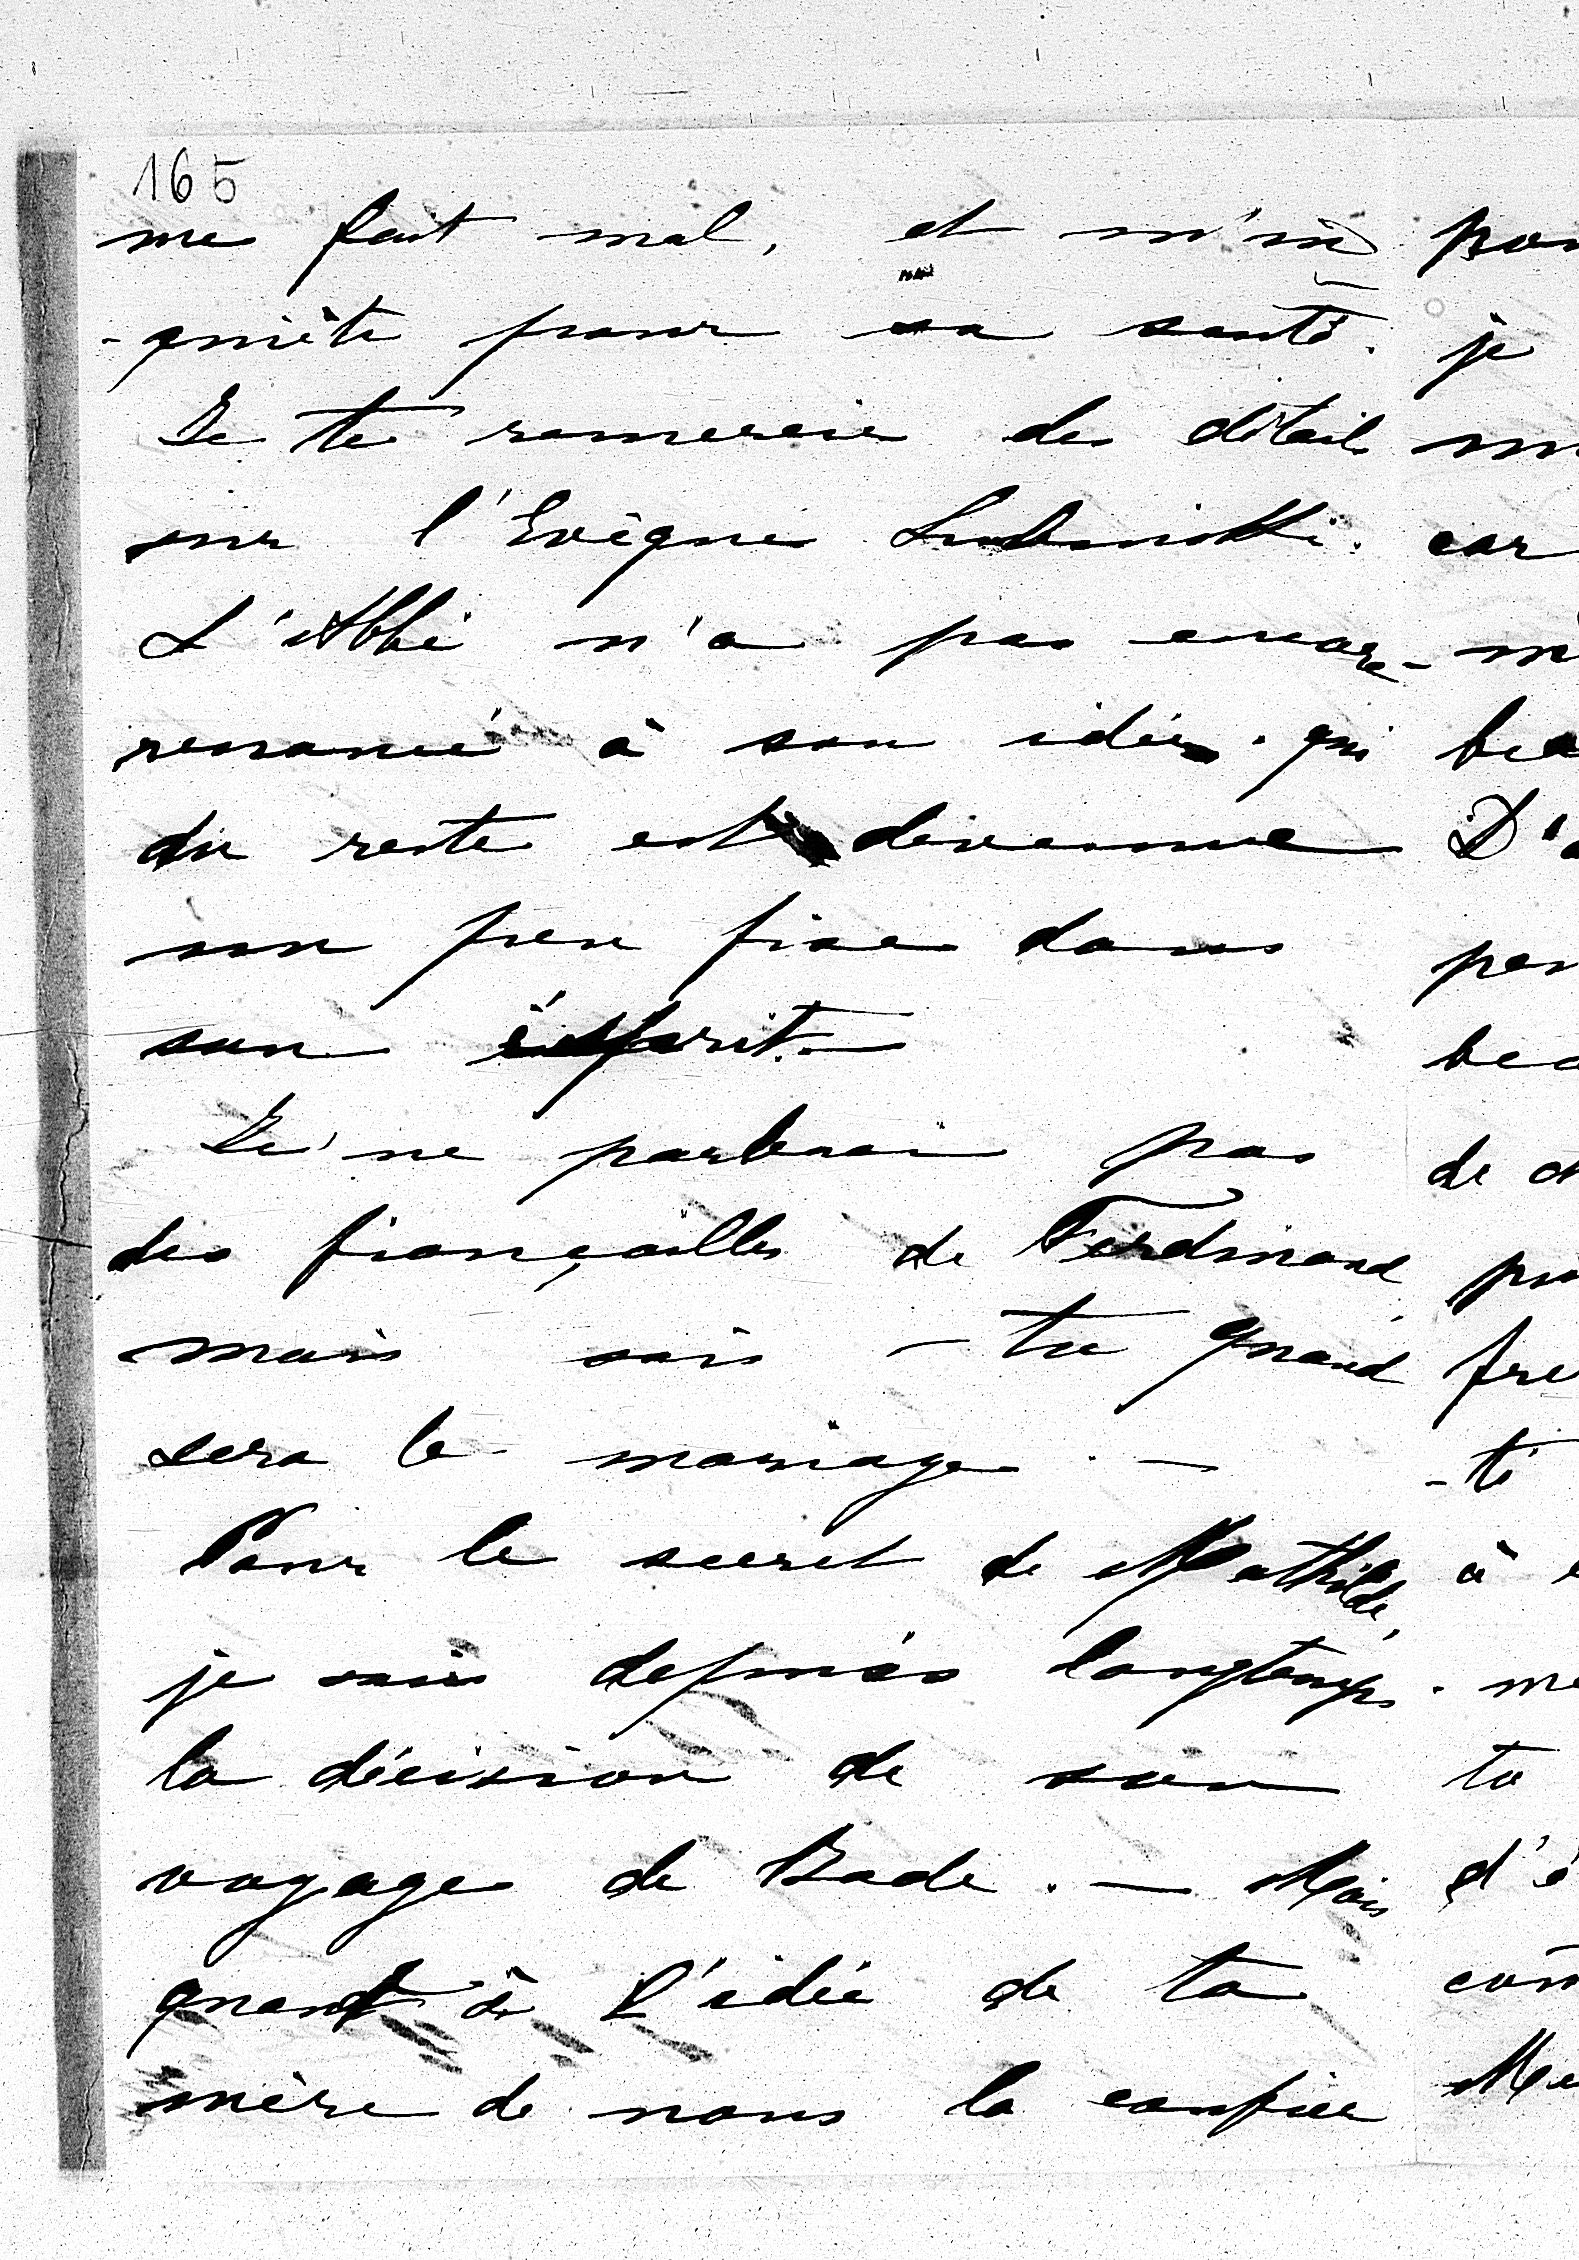 165
me fait mal, et m'in
-quiète pour sa santé.
Je te remercie des détails
sur l'Evêque
L'Abbé n'a pas encore-
renoncé à son idée. qui
du reste est devenue
un peu fixe dans
son ésprit.—
Je ne parlerai pas
des fiançailles de Ferdinand
mais sais-tu quand
sera le mariage.—
Pour le secret de Mathilde,
je sais depuis longtemps.
la décision de son
voyage de Bade.— Mais
quant à l'idée de ta
mère de nous la confier
je
car
D'a
de
-té
à
ta
d'é